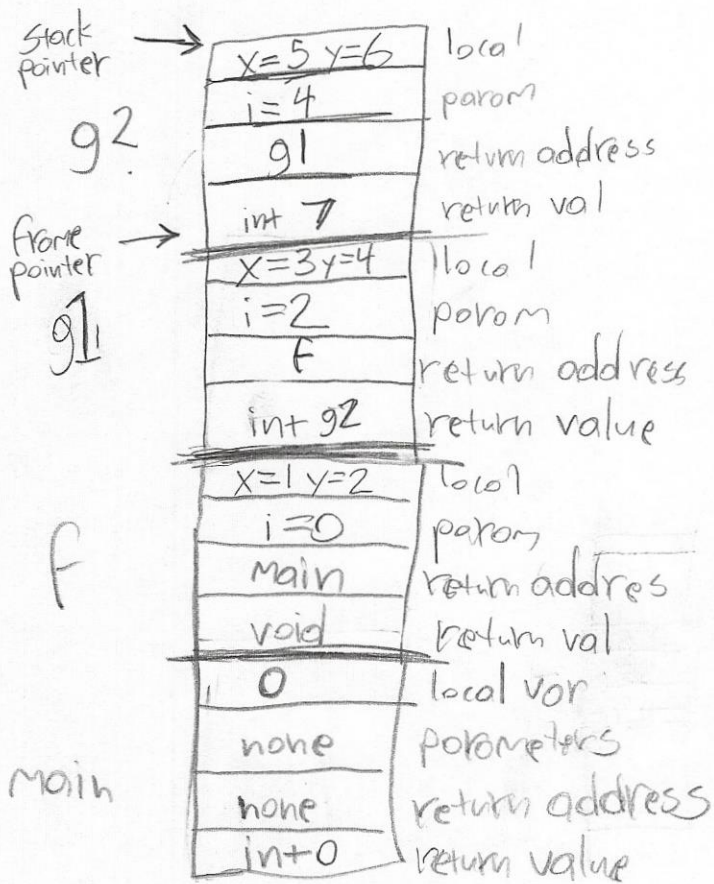 stack pointer
x=5 y=6 local
i=4 param
g2
g1 return address
int 7 return val
frame pointer
x=3 y=4 local
i=2 param
g1
f return address
int g2 return value
x=1 y=2 local
i=0 param
f
main return addres
void return val
0 local var
none parameters
main
none return address
int 0 return value